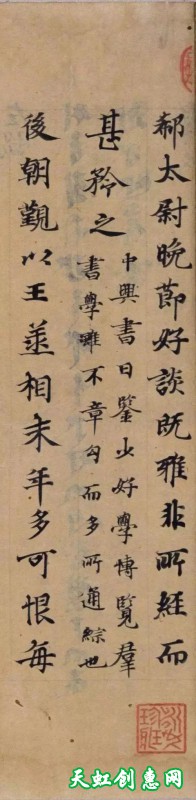 郗太尉晚節好談既雅非所經而
甚矜之
中興書曰鑒少好學博覽羣
書學雖不章句而多所通綜也
後朝覲以王丞相末年多可恨每
天虹创惠网